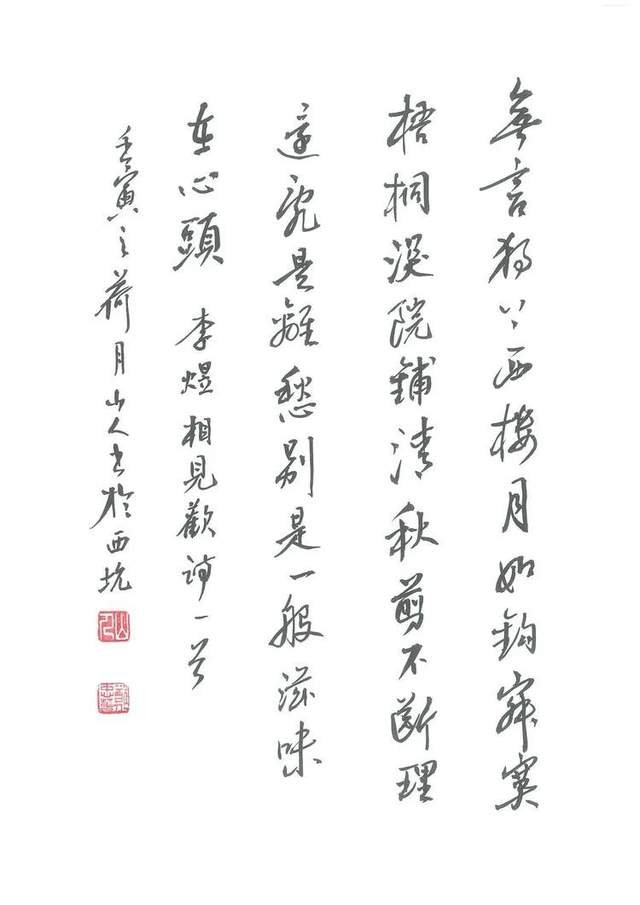 無言獨上西樓月如鉤寂寞
梧桐深院鋪清秋剪不斷理
還亂是離愁別是一般滋味
在心頭 李煜相見歡詩一首
壬寅之荷月山人書於西坑
山人